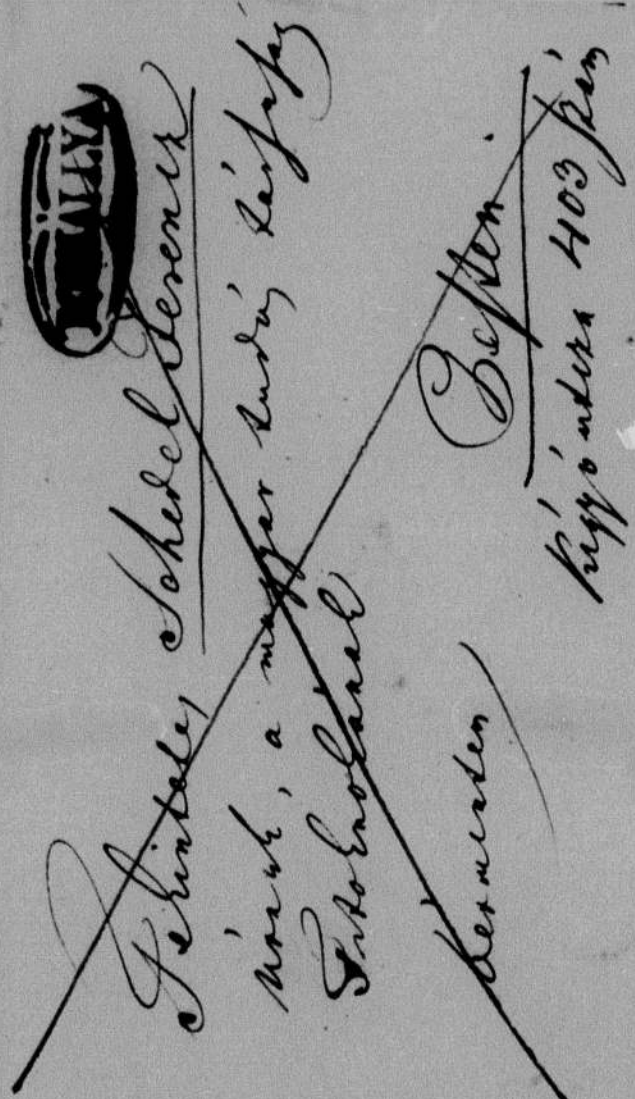 Tekintetes Schedel Ferencz
úrnak, a magyar tudós társaság
Titoknokának
Pesten
bérmenten
Kigyó utcza 403 szám